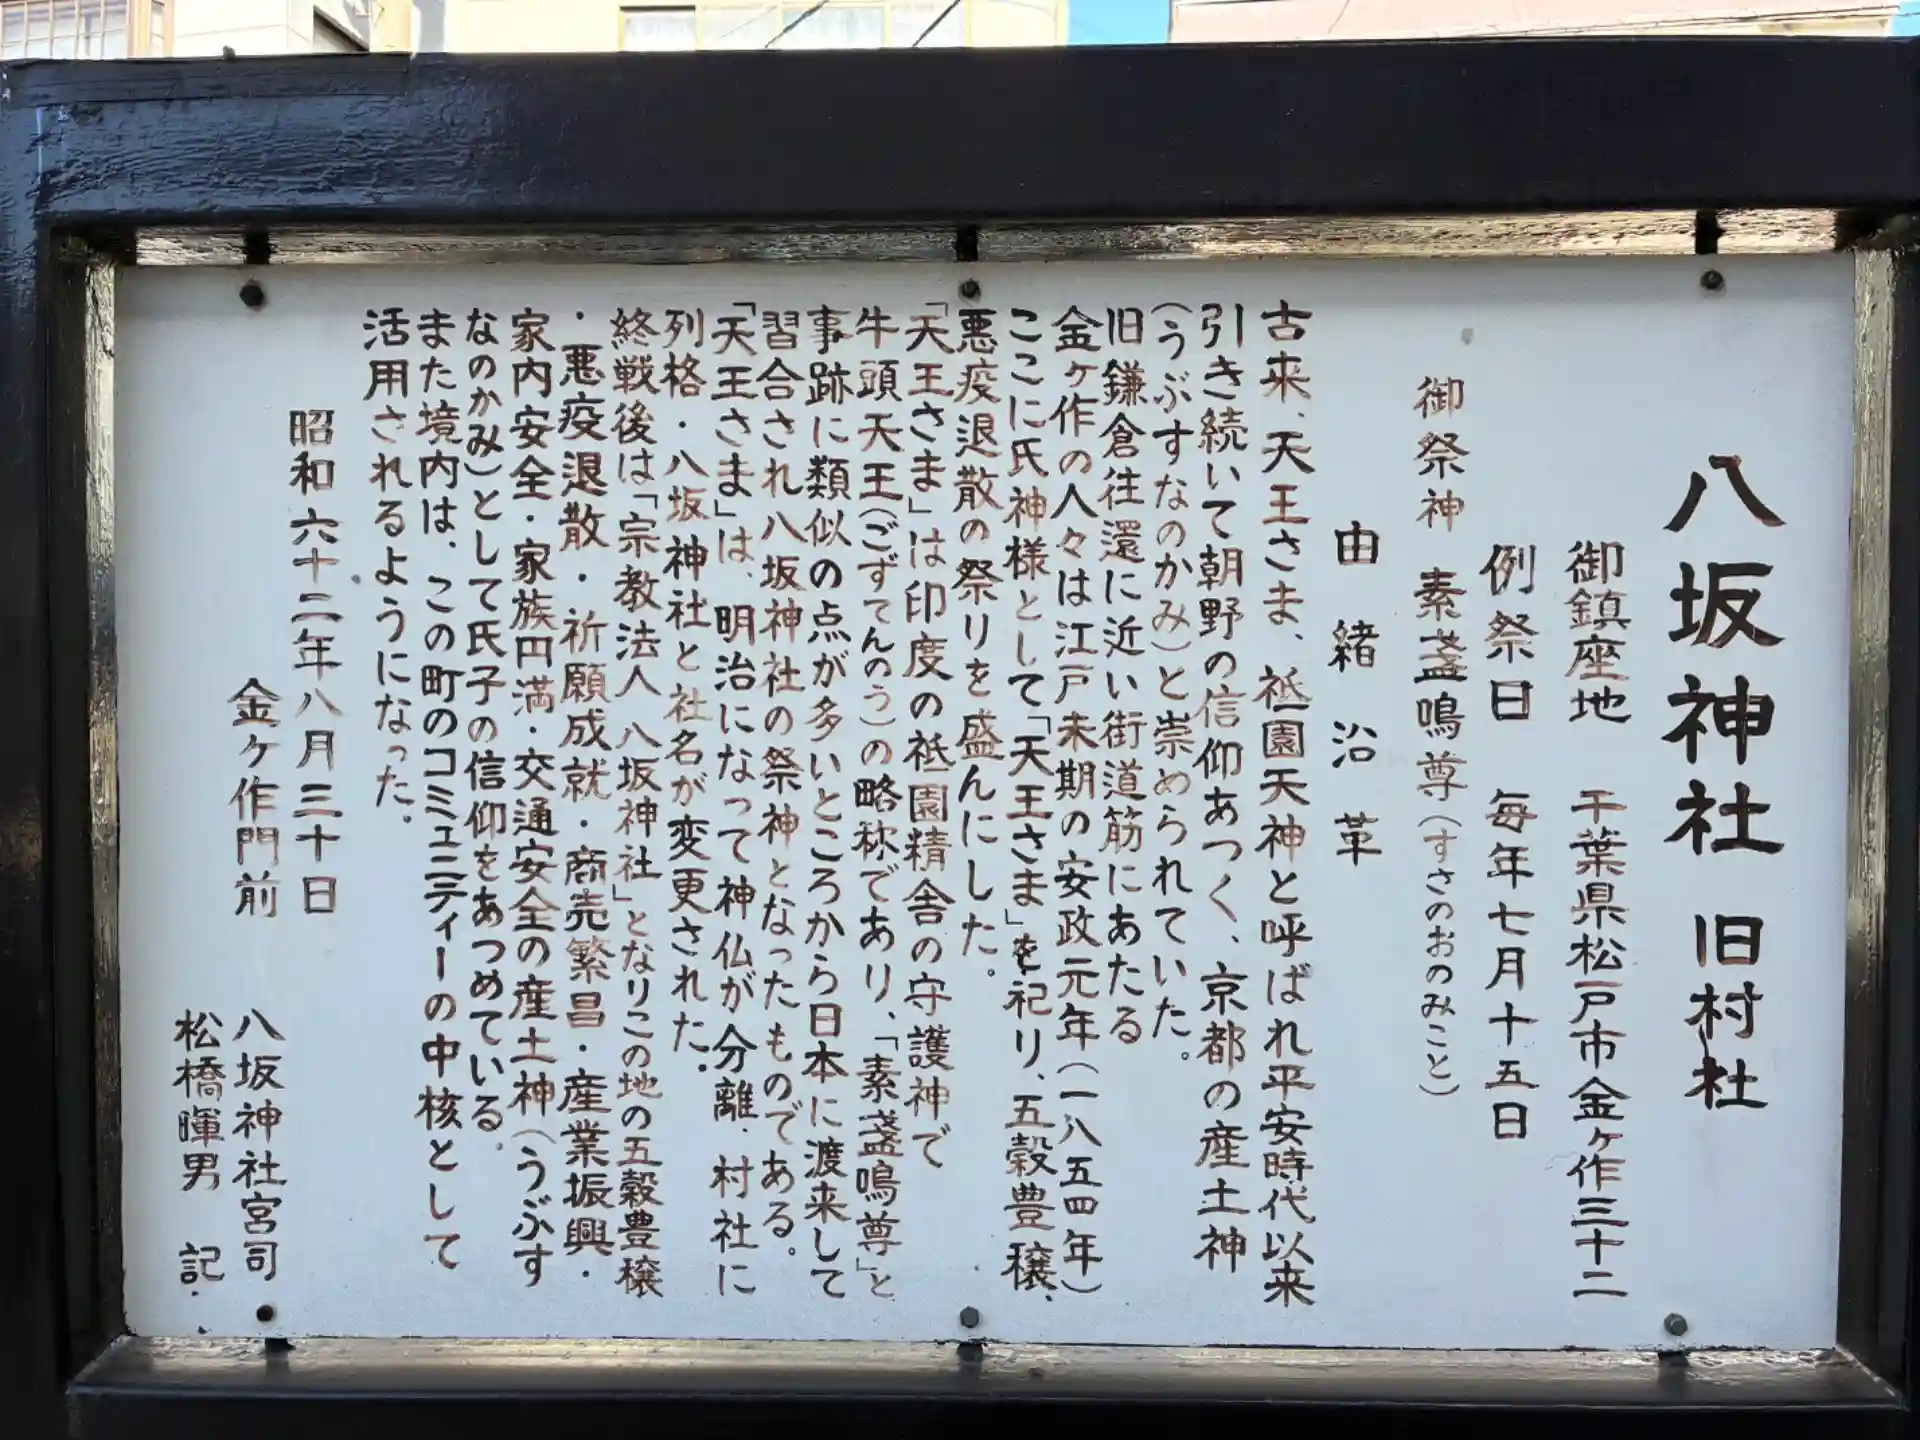 八坂神社 旧村社
御鎮座地 千葉県松戸市金ヶ作三十二
例祭日 毎年七月十五日
御祭神 素盞鳴尊(すさのおのみこと)
由緒沿革
古来、天王さま、祗園天神と呼ばれ平安時代以来
引き続いて朝野の信仰あつく、京都の産土神
(うぶすなのかみ)と崇められていた。
旧鎌倉往還に近い街道筋にあたる
金ヶ作の人々は江戸末期の安政元年(一八五四年)
ここに氏神様として「天王さま」を祀り、五穀豊穣、
悪疫退散の祭りを盛んにした。
「天王さま」は印度の祗園精舎の守護神で
牛頭天王(ごずてんのう)の略称であり、「素盞鳴尊」と
事跡に類似の点が多いところから日本に渡来して
習合され八坂神社の祭神となったものである。
「天王さま」は、明治になって神仏が分離、村社に
列格・八坂神社と社名が変更された。
終戦後は「宗教法人 八坂神社」となりこの地の五穀豊穣
・悪疫退散・祈願成就・商売繁昌・産業振興・
家内安全・家族円満・交通安全の産土神(うぶす
なのかみ)として氏子の信仰をあつめている。
また境内は、この町のコミュニティーの中核として
活用されるようになった。
昭和六十二年八月三十日
金ヶ作門前 八坂神社宮司
松橋暉男 記.